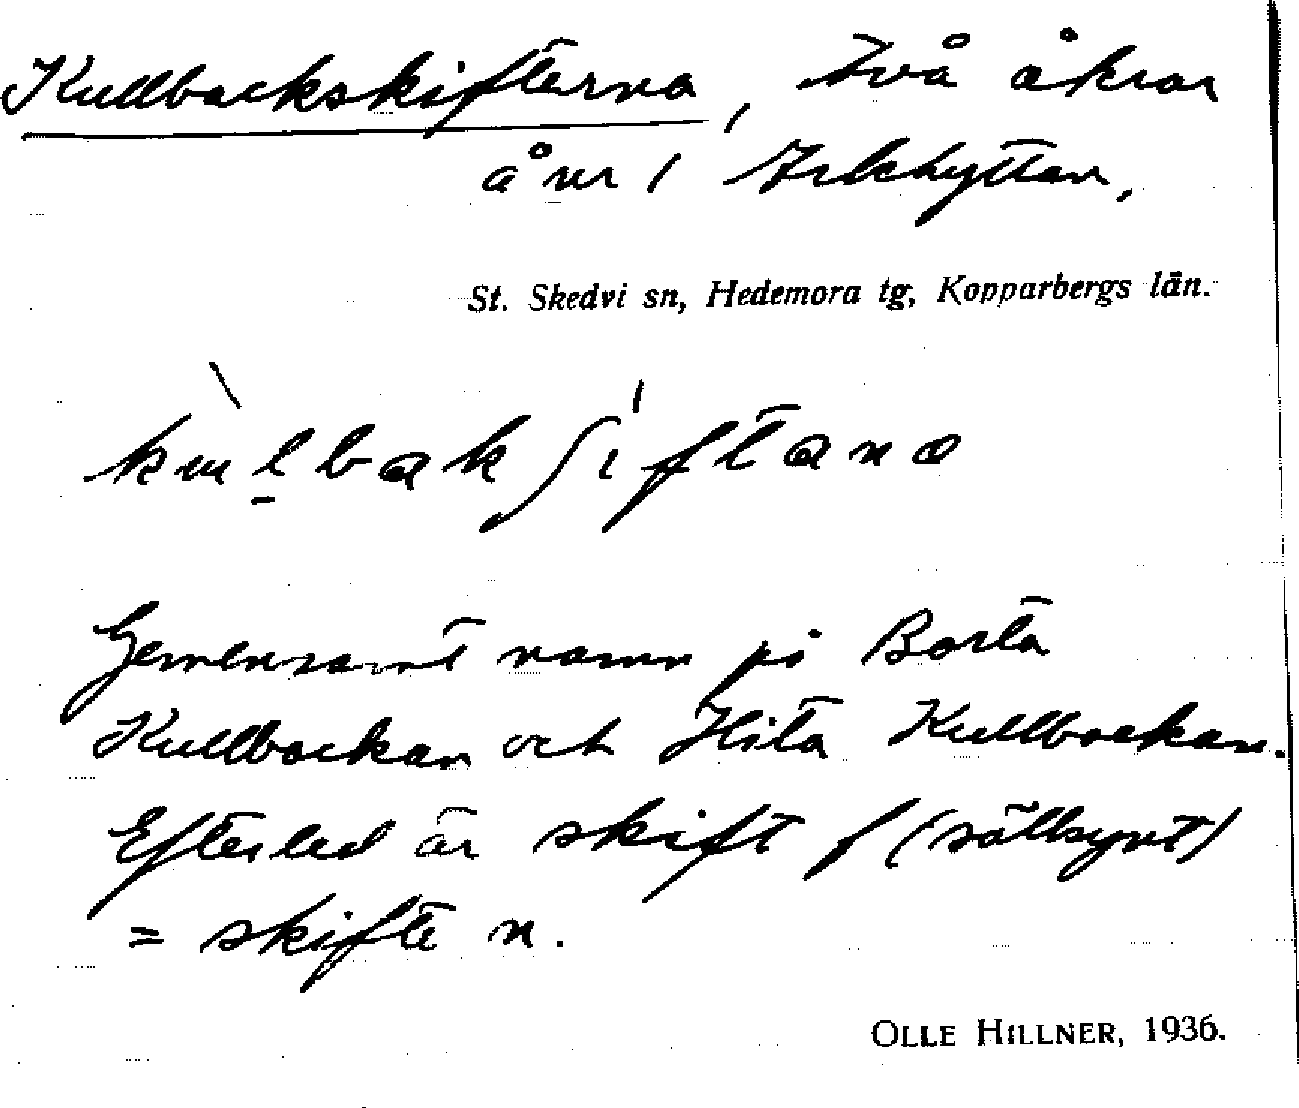 Kullbackskifterna, två åkrar
åvr i Arkhyttan,
St. Skedvi sn, Hedemora tg, Kopparbergs län.
kulbakʃiftana
Gemensamt namn på Borta
Kullbackan och Hita Kullbackan.
Efterled är skift f (sällsynt)
= skifte n.
OLLE HILLNER, 1936.